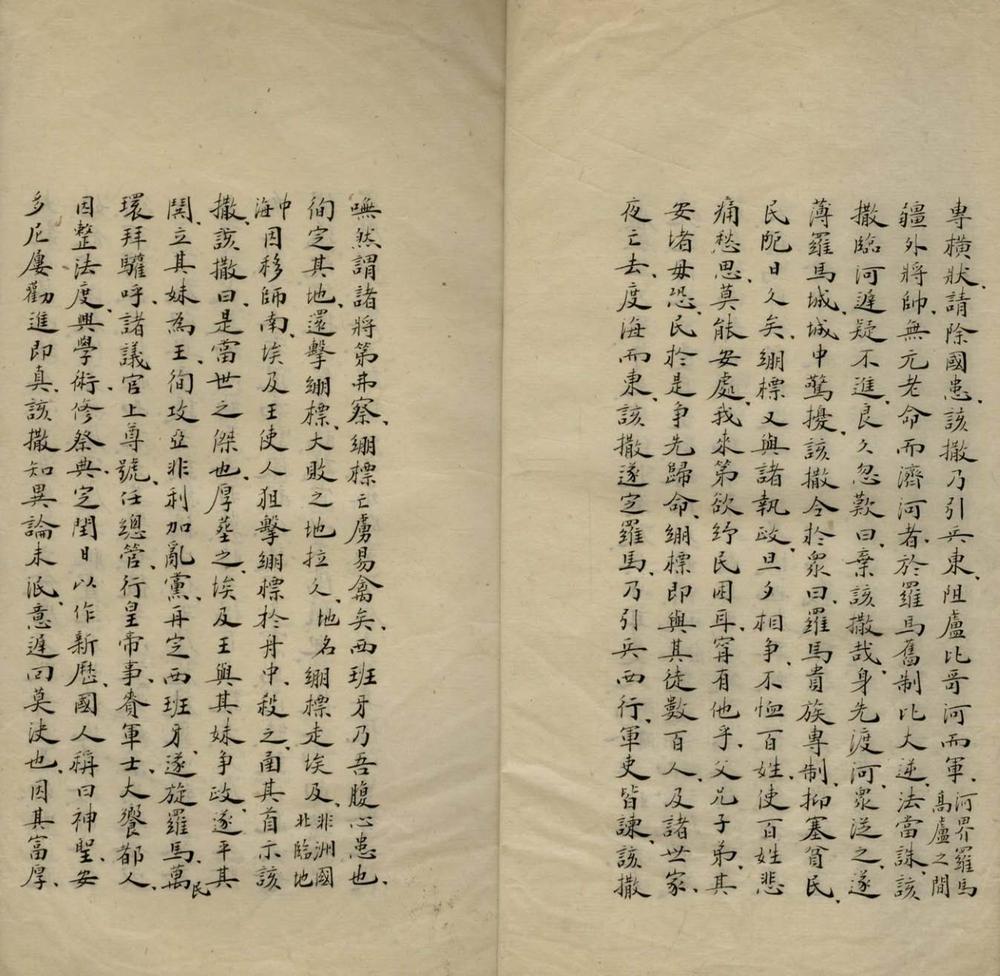 專橫狀請除國患該撒乃引兵東阻盧比哥河而軍河界羅馬高盧之間
疆外將帥無元老命而濟河者於羅馬舊制比大逆法當誅該
撒臨河遲疑不進良久忽歎曰棄該撒哉身先渡河眾從之遂
薄羅馬城城中驚擾該撒令於眾曰羅馬貴族專制抑塞貧民
民阨日久矣綳標又與諸執政旦夕相爭不恤百姓使百姓悲
痛愁思莫能安處我來第欲紓民困耳甯有他乎父兄子弟其
安堵毋恐民於是爭先歸命綳標即與其徒數百人及諸世家
夜亡去度海而東該撒遂定羅馬乃引兵西行軍吏皆諫該撒
嘸然謂諸將第弗察綳標亡虜易禽矣西班牙乃吾腹心患也
徇定其地還擊綳標大敗之地拉久地名綳標走埃及非洲國北臨地
中海因移師南埃及王使人狙擊綳標於舟中殺之函其首示該
撒該撒曰是當世之傑也厚葬之埃及王與其妹爭政遂平其
鬨立其妹為王徇攻亞非利加亂黨再定西班牙遂旋羅馬萬民
環拜驩呼諸議官上尊號任總管行皇帝事賚軍士大饗都人
因整法度興學術修祭典定閏日以作新歷國人稱曰神聖安
多尼屢勸進即真該撒知異論未泯意遲回莫決也因其富厚